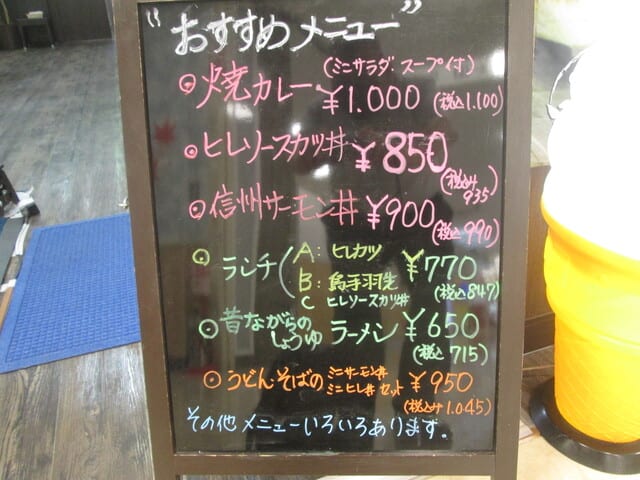 "おすすめメニュー"
(ミニサラダ・スープ付)
◎焼カレー ¥1.000 (税込1.100)
◎ヒレソースカツ丼 ¥850
(税込み935)
◎信州サーモン丼 ¥900
(税込990)
◎ランチ(A: ヒレカツ ¥770
B: 鳥手羽先
(税込847)
C ヒレソースカツ丼
◎昔ながらのしょうゆラーメン ¥650
(税込715)
◎うどんそばの ミニサーモン丼 ミニヒレ丼 セット ¥950
(税込み1.045)
その他メニューいろいろあります。